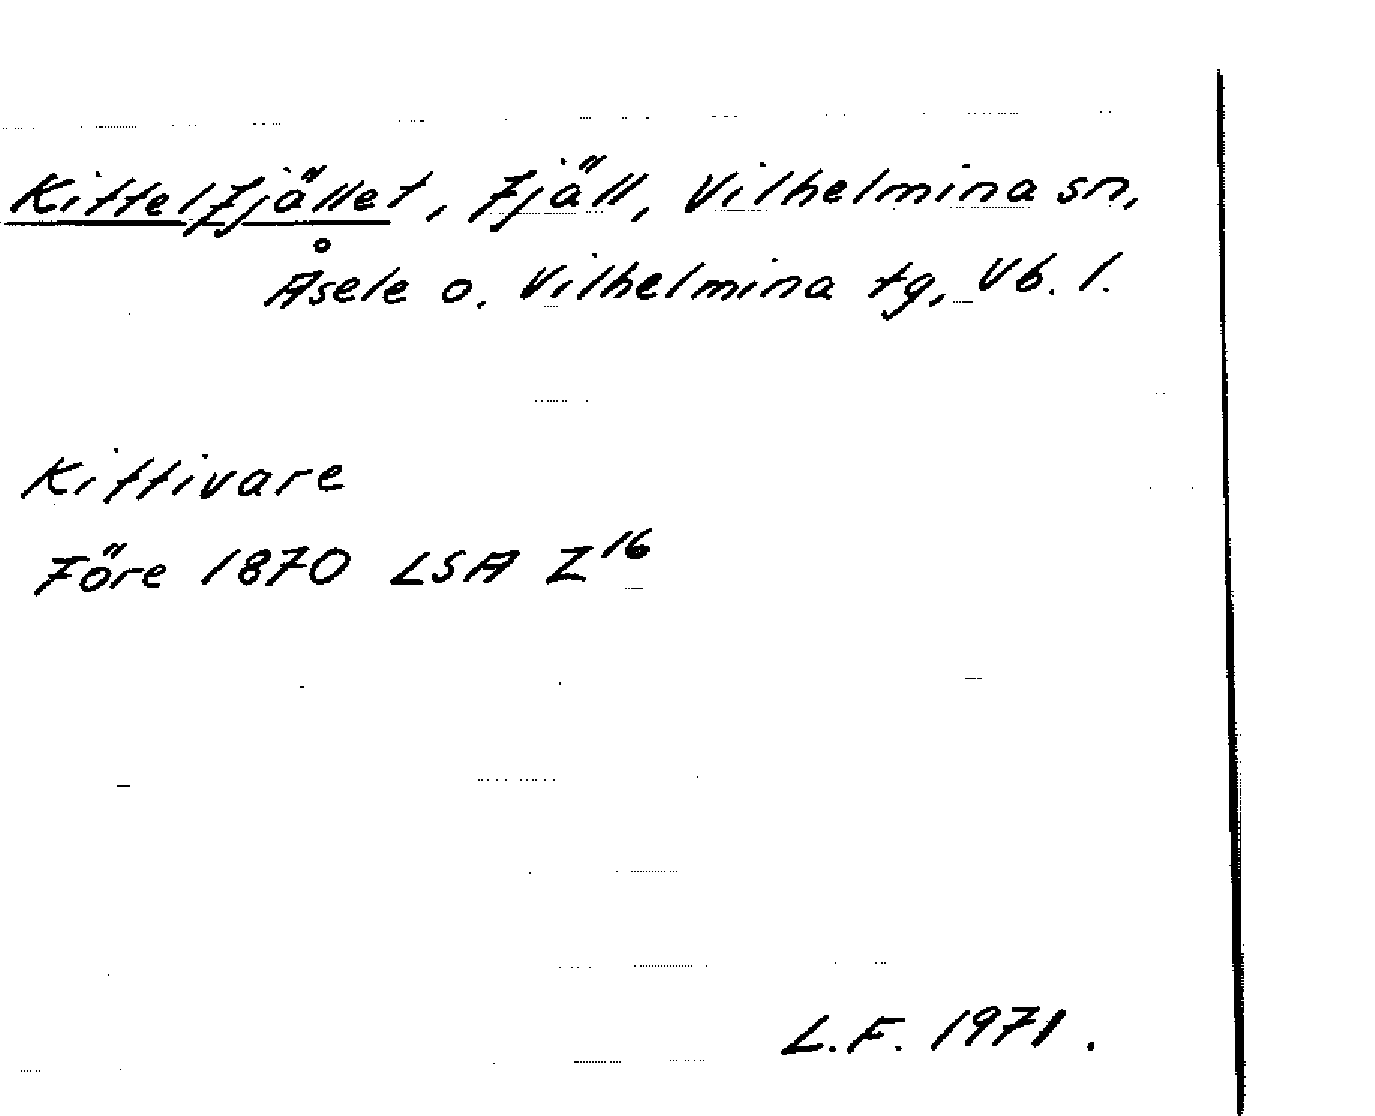 Kittelfjället, fjäll, Vilhelmina sn,
Åsele o. Vilhelmina tg, Vb. l.
Kittivare
Före 1870 LSA Z16
L.F. 1971.